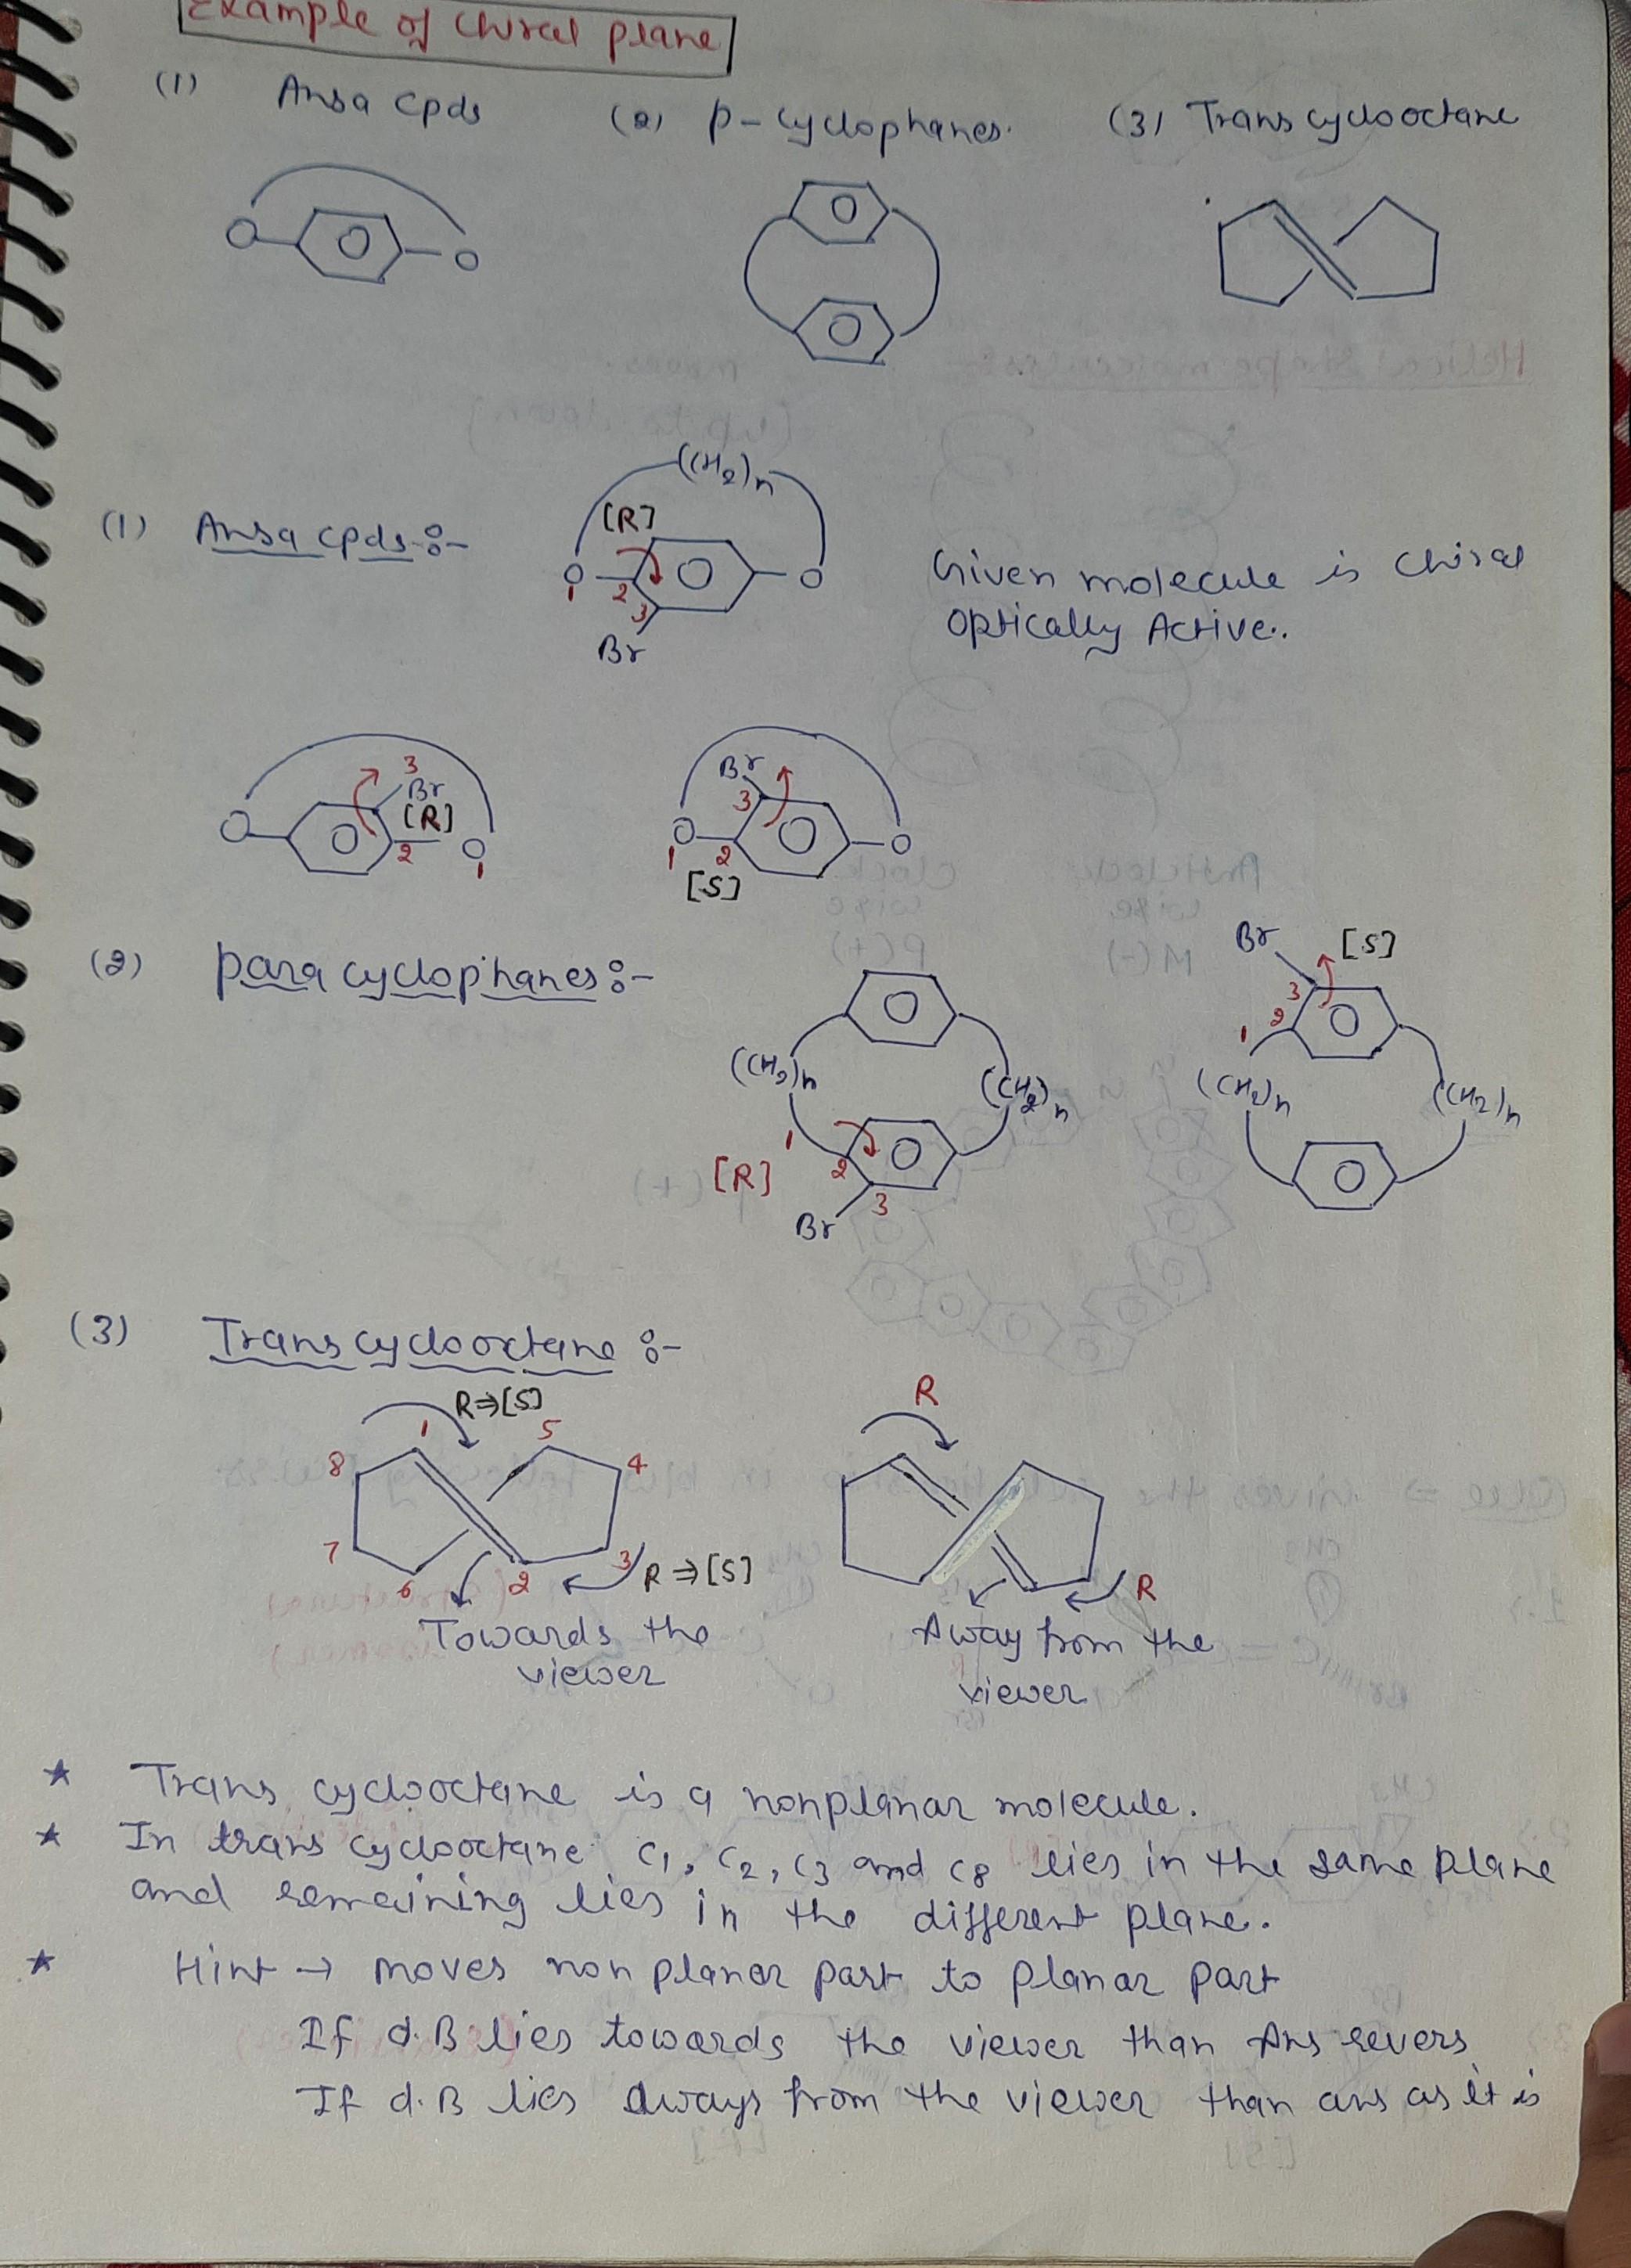 Example of Chiral plane
(1) Ansa Cpds (2) P-Cyclophanes. (3) Trans cyclooctane
O O
(1) Ansa cpds :-
(CH2)n
[R]
O O
1 2 3
Br
Given molecule is chiral
Optically Active.
3
Br
[R]
O O
2 1
Br
3
O O
1 2
[S]
(2) para cyclophanes :-
(CH2)n (CH2)n
1 2 3
[R]
Br
Br [S]
3
2
1
(CH2)n (CH2)n
(3) Trans cyclooctane :-
R⇒[S]
1 5
8 4
7 3
6 2
R⇒[S]
Towards the
viewer
R
R
Away from the
viewer
★ Trans cyclooctane is a nonplanar molecule.
★ In trans cyclooctane C1, C2, C3 and C8 lies in the same plane
and remaining lies in the different plane.
★ Hint → moves non planar part to planar part
If d.B lies towards the viewer than Ans revers
If d.B lies aways from the viewer than ans as it is